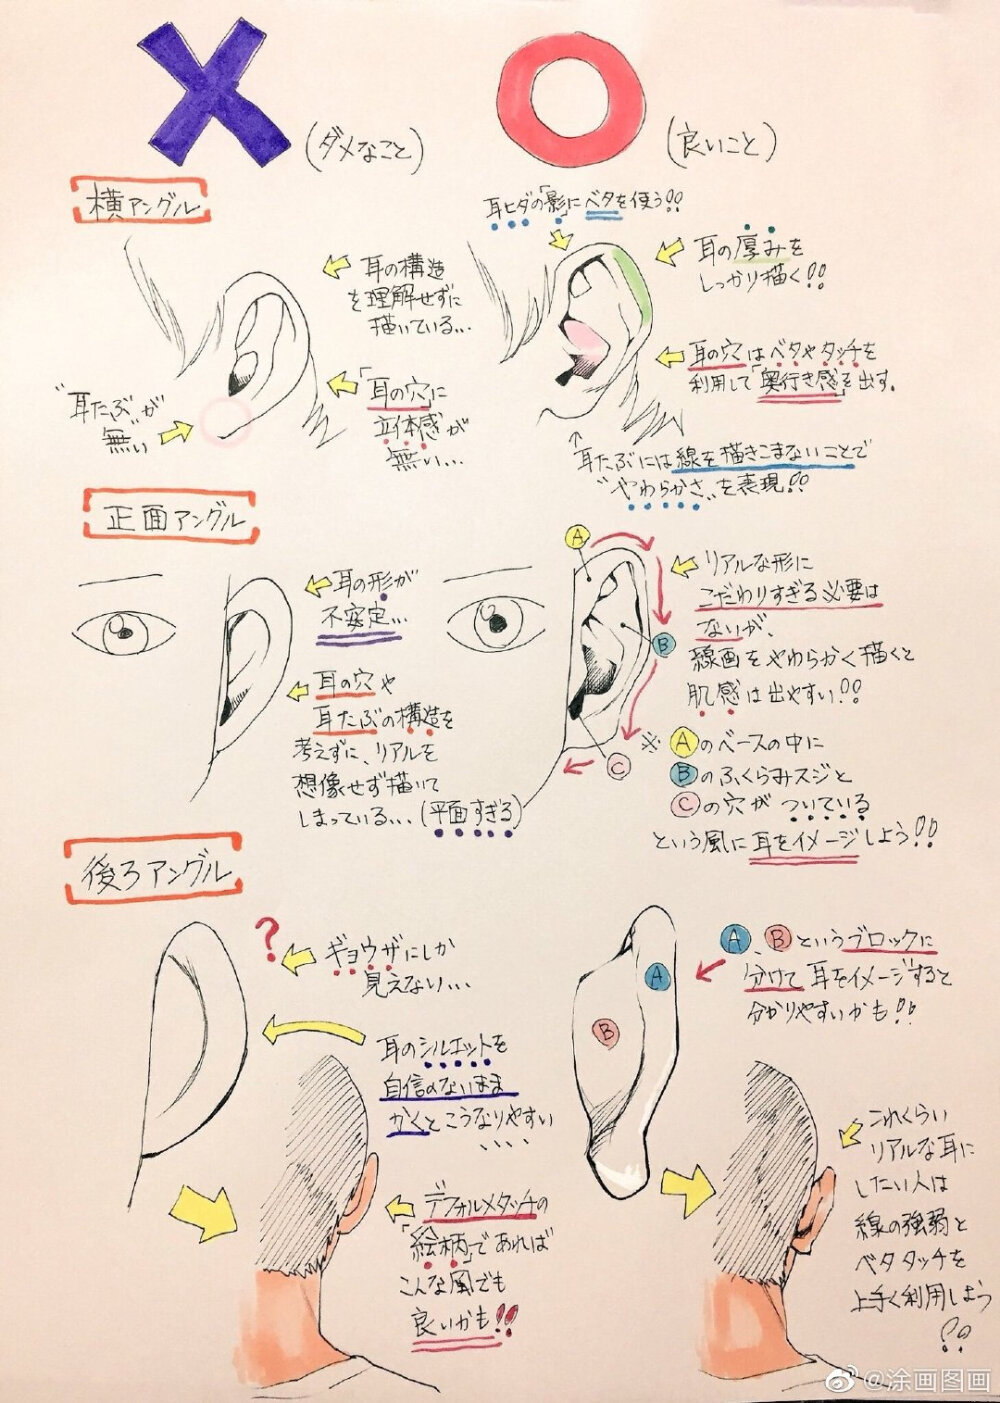 (ダメなこと)
(良いこと)
横アングル
耳の構造
を理解せずに
描いている...
「耳の穴」に
立体感が
無い...
"耳たぶ"が
無い
耳ヒダの「影」にベタを使う!!
耳の厚みを
しっかり描く!!
耳の穴はベタやタッチを
利用して「奥行き感」を出す。
耳たぶには線を描きこまないことで
"やわらかさ"を表現!!
正面アングル
耳の形が
不安定...
耳の穴や
耳たぶの構造を
考えずに、リアルを
想像せず描いて
しまっている...(平面すぎる)
A
B
C
リアルな形に
こだわりすぎる必要は
ないが、
線画をやわらかく描くと
肌感は出やすい!!
※ Aのベースの中に
Bのふくらみスジと
Cの穴がついている
という風に耳をイメージしよう!!
後ろアングル
?
ギョウザにしか
見えない...
耳のシルエットを
自信のないまま
かくとこうなりやすい
、、、、
デフォルメタッチの
「絵柄」であれば
こんな風でも
良いかも!!
A
B
A、Bというブロックに
分けて耳をイメージすると
分かりやすいかも!!
これくらい
リアルな耳に
したい人は
線の強弱と
ベタタッチを
上手く利用しよう
!!
@涂画图画